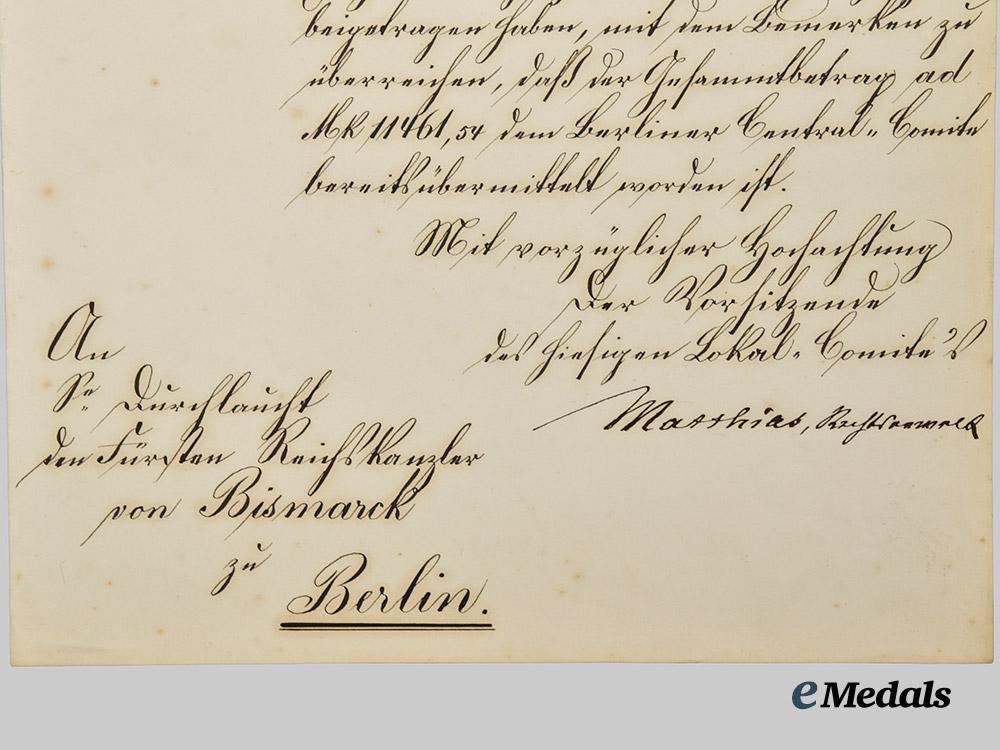 beigetragen haben, mit dem Bemerken zu
überreichen, daß der Gesammtbetrag ad
Mk 11461,54 dem Berliner Central-Comite
bereits übermittelt worden ist.
Mit vorzüglicher Hochachtung
Der Vorsitzende
des hiesigen Lokal-Comite's
Matthias, Rechtsanwalt
An
Sr Durchlaucht
den Fürsten Reichskanzler
von Bismarck
zu
Berlin.
eMedals